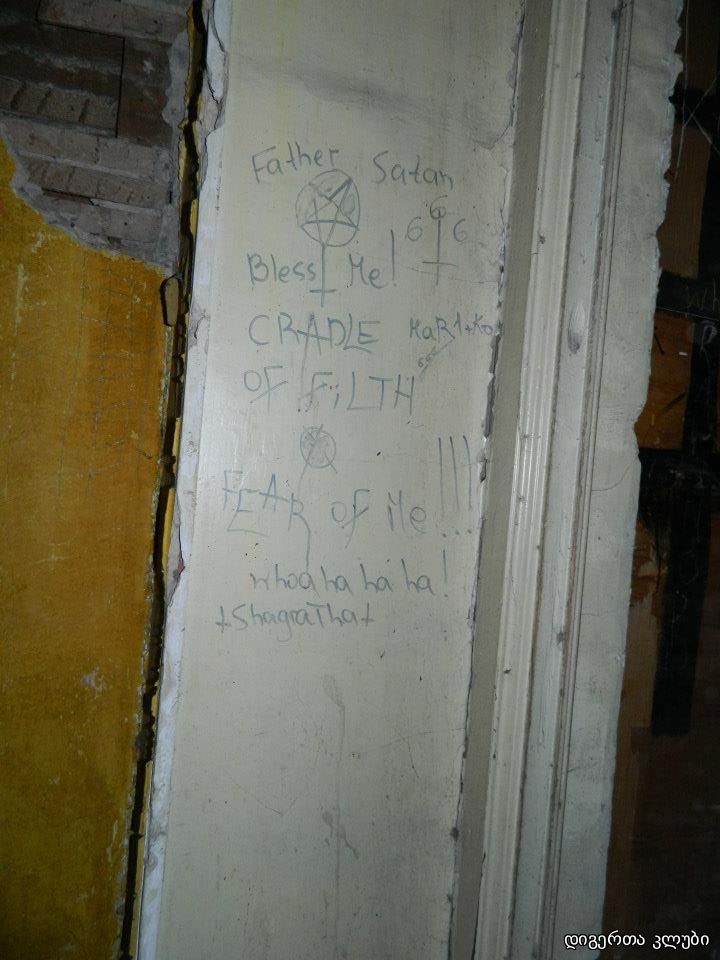 Father Satan
666
Bless Me!
CRADLE
OF FiLTH
FEAR of Me!!!
whoa ha ha ha!
+ShagraThat
დიგერთა კლუბი